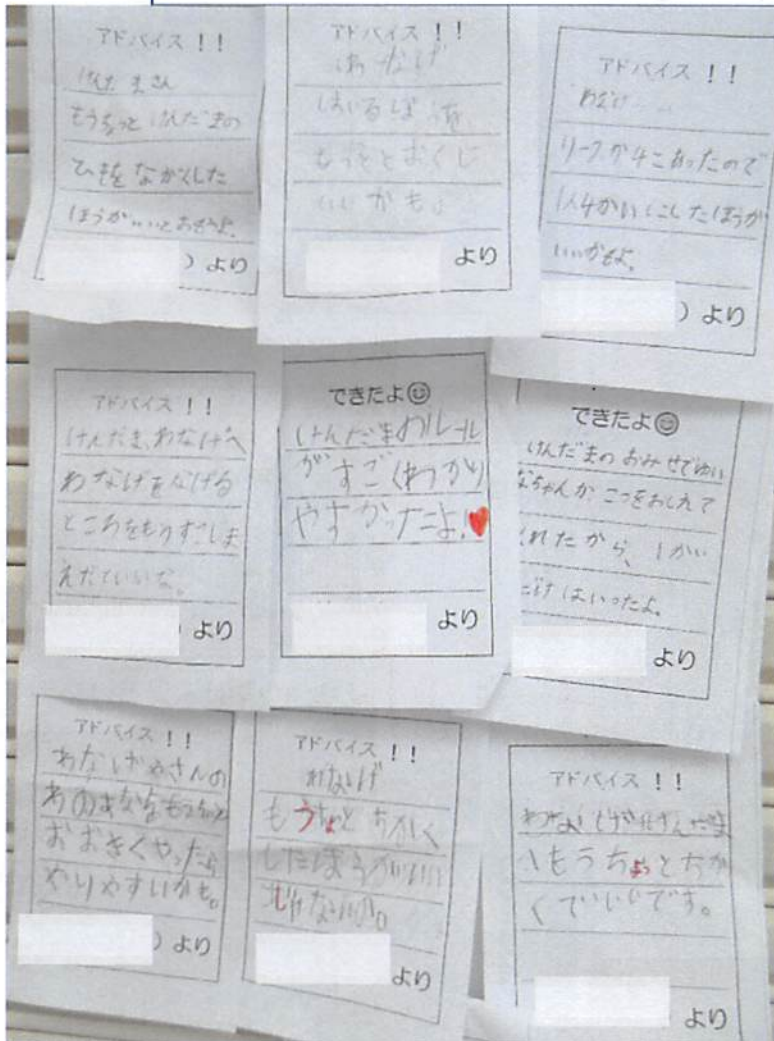 アドバイス！！
けんだまさん
もうちょっとけんだまの
ひもをながくした
ほうがいいとおもうよ。
）より
アドバイス！！
わなげ
はいるぼうを
いいかも。
より
アドバイス！！
わなげ
リークが4こあったので
1人4かいにしたほうが
いいかもよ。
）より
アドバイス！！
けんだま、わなげへ
わなげをなげる
ところをもうすこしま
えだといいな。
）より
できたよ☺
けんだまのルール
がすごくわかり
やすかったよ！♥
より
できたよ☺
けんだまのおみせでゆい
なちゃんがこつをおしえて
くれたから、1かい
だけはいったよ。
より
アドバイス！！
わなげやさんの
わのあなをもうちょっと
おおきくやったら
やりやすいかも。
）より
アドバイス！！
わなげ
もうちょとちかく
したほうがいいん
じゃないか。
より
アドバイス！！
もうちょっとちか
くでいいです。
より